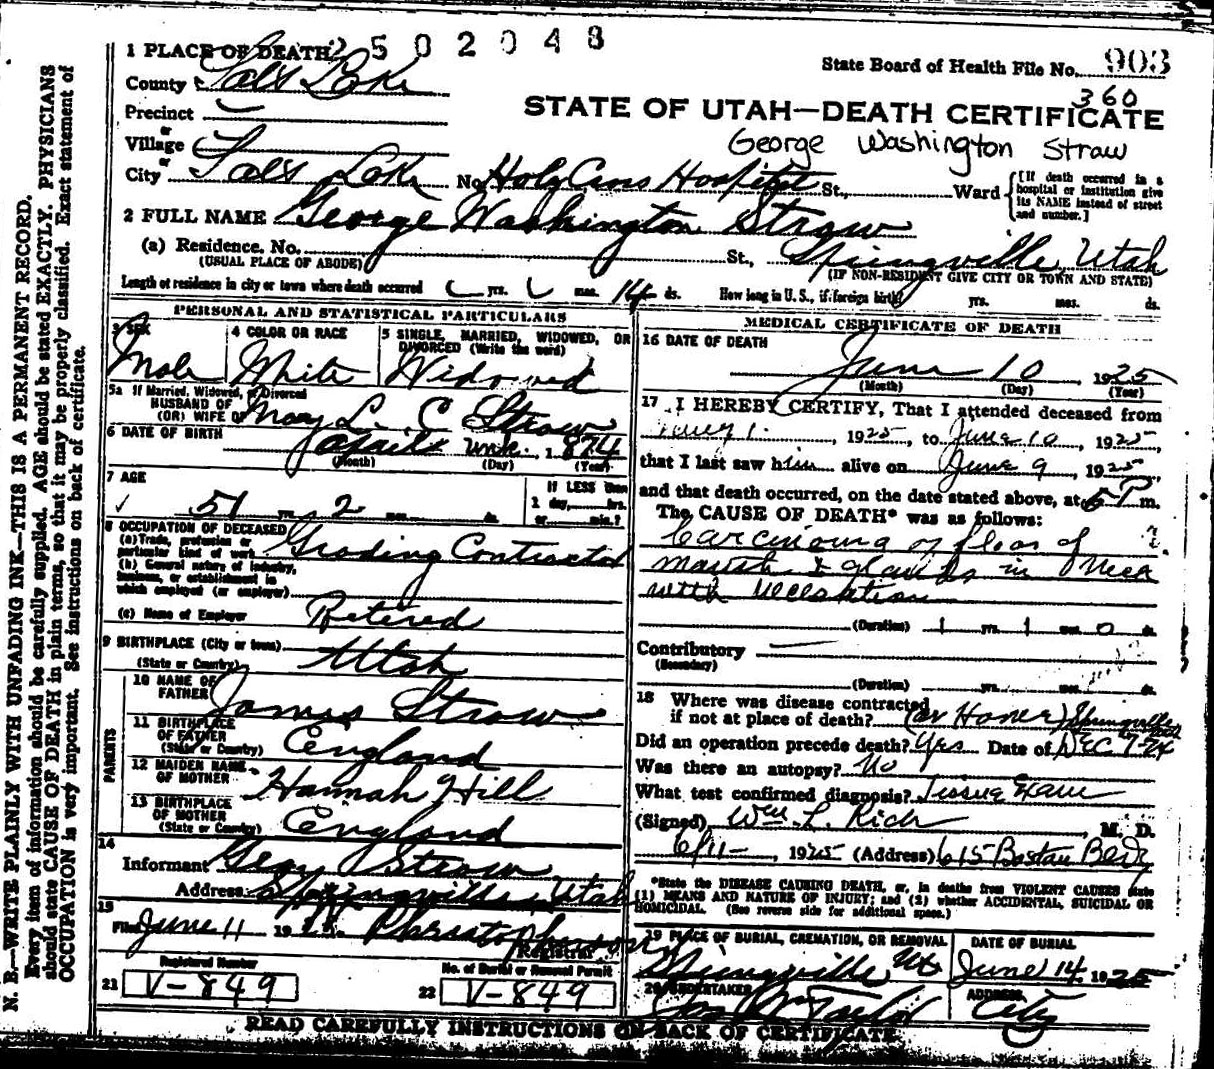 2502048
1 PLACE OF DEATH
State Board of Health File No. 903
County Salt Lake
360
STATE OF UTAH—DEATH CERTIFICATE
Precinct
George Washington Straw
or
Village
or
City Salt Lake No. Holy Cross Hospital St., Ward
[If death occurred in a hospital or institution give its NAME instead of street and number.]
2 FULL NAME George Washington Straw
(a) Residence. No. St., Springville Utah
(USUAL PLACE OF ABODE) (IF NON-RESIDENT GIVE CITY OR TOWN AND STATE)
Length of residence in city or town where death occurred yrs. mos. 14 ds. How long in U. S., if foreign birth? yrs. mos. ds.
PERSONAL AND STATISTICAL PARTICULARS
3 SEX 4 COLOR OR RACE 5 SINGLE, MARRIED, WIDOWED, OR
DIVORCED (Write the word)
Male White Widowed
5a If Married, Widowed, or Divorced
HUSBAND OF
(OR) WIFE OF Mary L. C Straw
6 DATE OF BIRTH April unk. 1874
(Month) (Day) (Year)
7 AGE IF LESS than
51 yrs. 2 mos. ds. 1 day, hrs.
or min.?
8 OCCUPATION OF DECEASED
(a) Trade, profession or
particular kind of work Grading Contractor
(b) General nature of industry,
business, or establishment in
which employed (or employer)
(c) Name of Employer Retired
9 BIRTHPLACE (City or town)
(State or Country) Utah
PARENTS
10 NAME OF
FATHER James Straw
11 BIRTHPLACE
OF FATHER
(State or Country) England
12 MAIDEN NAME
OF MOTHER Hannah Hill
13 BIRTHPLACE
OF MOTHER
(State or Country) England
14
Informant Geo Straw
Address Springville, Utah
15
Filed June 11 19 Christopherson
Registrar
Registered Number No. of Burial or Removal Permit
21 V-849 22 V-849
MEDICAL CERTIFICATE OF DEATH
16 DATE OF DEATH
June 10, 1925
(Month) (Day) (Year)
17 I HEREBY CERTIFY, That I attended deceased from
1., 1925, to June 10, 1925
that I last saw him alive on June 9, 1925
and that death occurred, on the date stated above, at 5 P m.
The CAUSE OF DEATH* was as follows:
Carcinoma of floor of
mouth & glands in neck
with ulceration
(Duration) 1 yrs. 1 mos. 0 ds.
Contributory
(Secondary)
(Duration) yrs. mos. ds.
18 Where was disease contracted
if not at place of death? (at Home) Springville Utah
Did an operation precede death? Yes Date of Dec 1-24
Was there an autopsy? No
What test confirmed diagnosis? Tissue Exam
(Signed) Wm. L. Rich, M. D.
6/11-, 1925 (Address) 615 Boston Bldg
*State the DISEASE CAUSING DEATH, or, in deaths from VIOLENT CAUSES state
(1) MEANS AND NATURE OF INJURY; and (2) whether ACCIDENTAL, SUICIDAL OR
HOMICIDAL. (See reverse side for additional space.)
19 PLACE OF BURIAL, CREMATION, OR REMOVAL DATE OF BURIAL
Springville Ut June 14, 1925
20 UNDERTAKER ADDRESS
Taylor City
READ CAREFULLY INSTRUCTIONS ON BACK OF CERTIFICATE
N. B.—WRITE PLAINLY WITH UNFADING INK—THIS IS A PERMANENT RECORD.
Every item of information should be carefully supplied. AGE should be stated EXACTLY. PHYSICIANS
should state CAUSE OF DEATH in plain terms, so that it may be properly classified. Exact statement of
OCCUPATION is very important. See instructions on back of certificate.